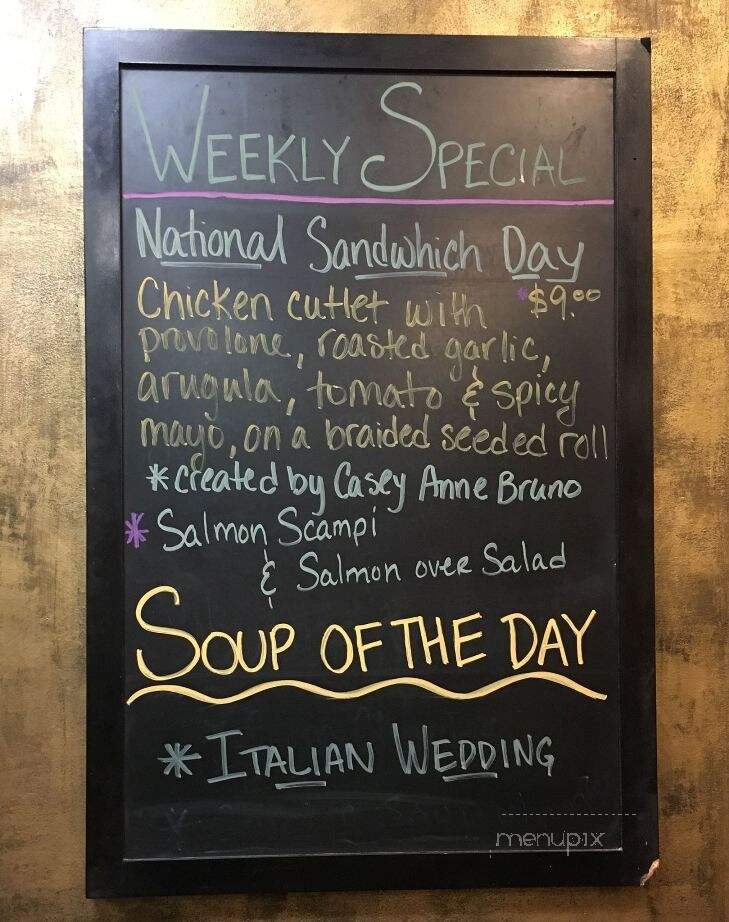 WEEKLY SPECIAL
National Sandwhich Day
Chicken cutlet with *$9.00
provolone, roasted garlic,
arugula, tomato & spicy
mayo, on a braided seeded roll
*created by Casey Anne Bruno
* Salmon Scampi
& Salmon over Salad
SOUP OF THE DAY
* ITALIAN WEDDING
menupix